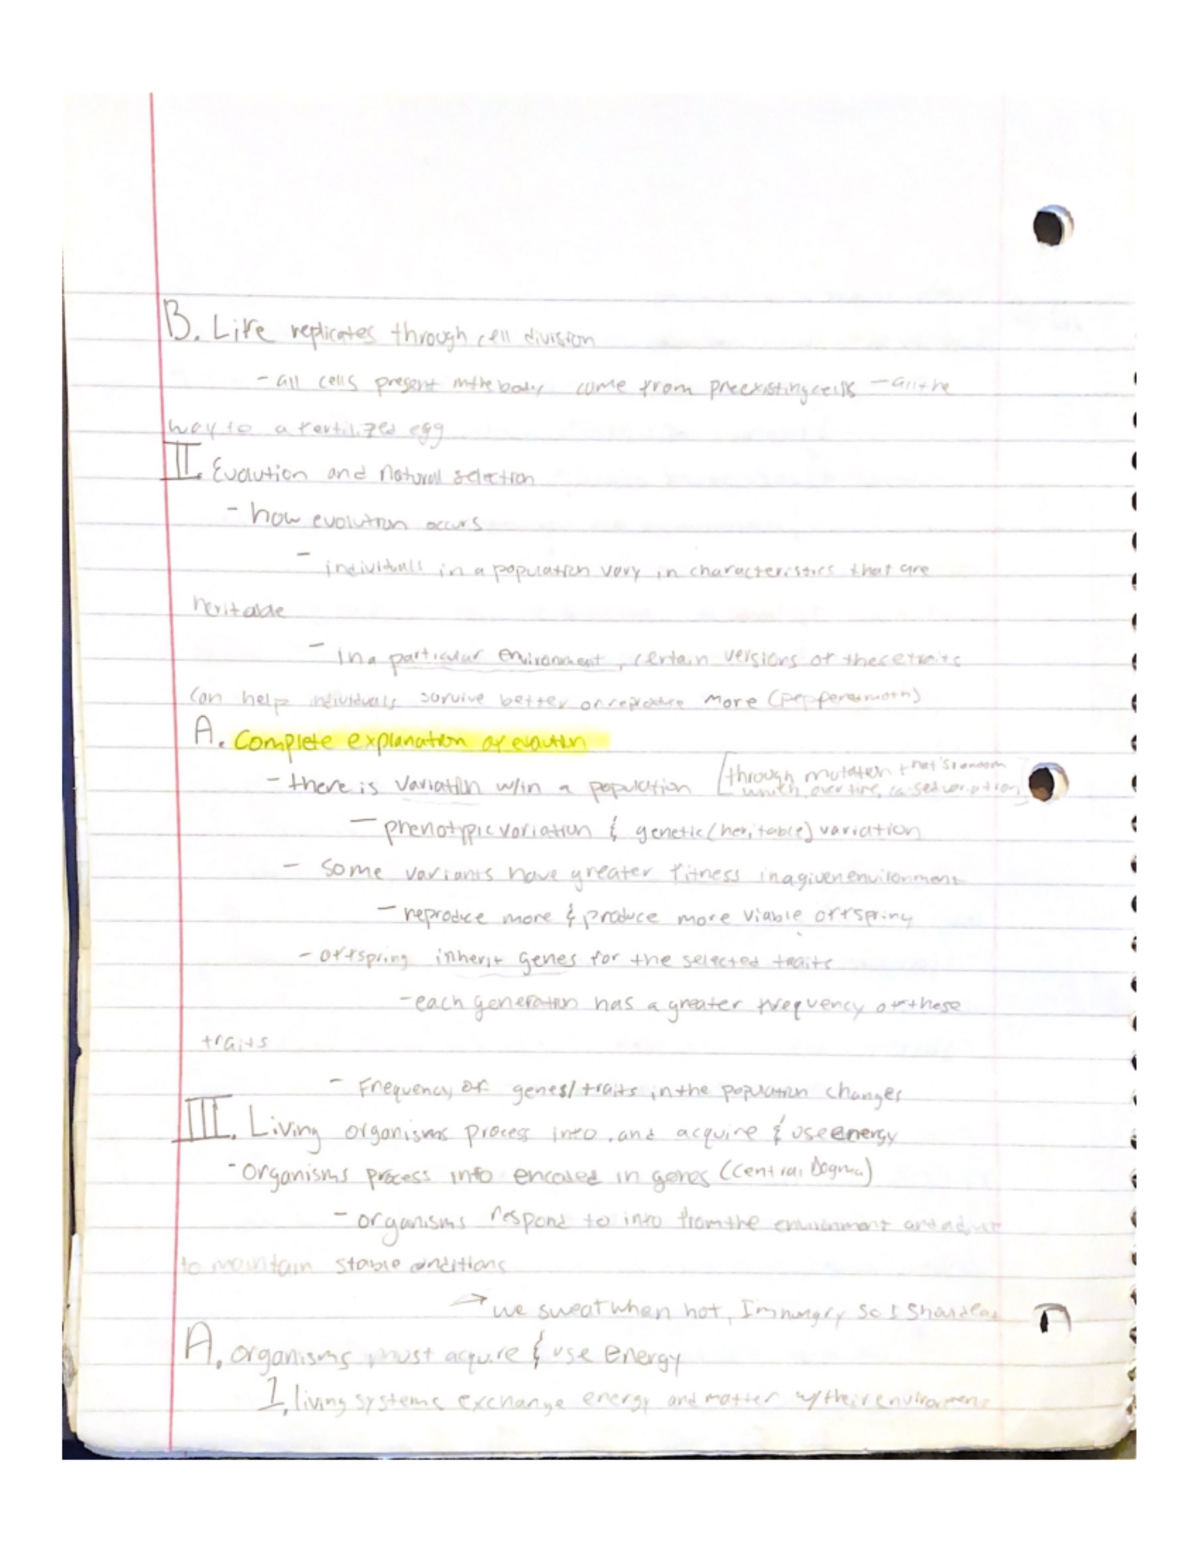 B. Life replicates through cell division
- all cells present in the body come from preexisting cells - all the
way to a fertilized egg
II. Evolution and natural selection
- how evolution occurs
- individuals in a population vary in characteristics that are
heritable
- in a particular environment, certain versions of these traits
can help individuals survive better or reproduce more (peppered moth)
A. Complete explanation of evolution
- there is variation w/in a population [through mutation that's random
which, over time, caused variation]
- phenotypic variation & genetic (heritable) variation
- some variants have greater fitness in a given environment
- reproduce more & produce more viable offspring
- offspring inherit genes for the selected traits
- each generation has a greater frequency of these
traits
- Frequency of genes/traits in the population changes
III. Living organisms process info. and acquire & use energy
- organisms process info encoded in genes (Central Dogma)
- organisms respond to info from the environment and adjust
to maintain stable conditions
→ we sweat when hot, Im hungry so I should eat
A. organisms must acquire & use energy
1. living systems exchange energy and matter w/ their environment